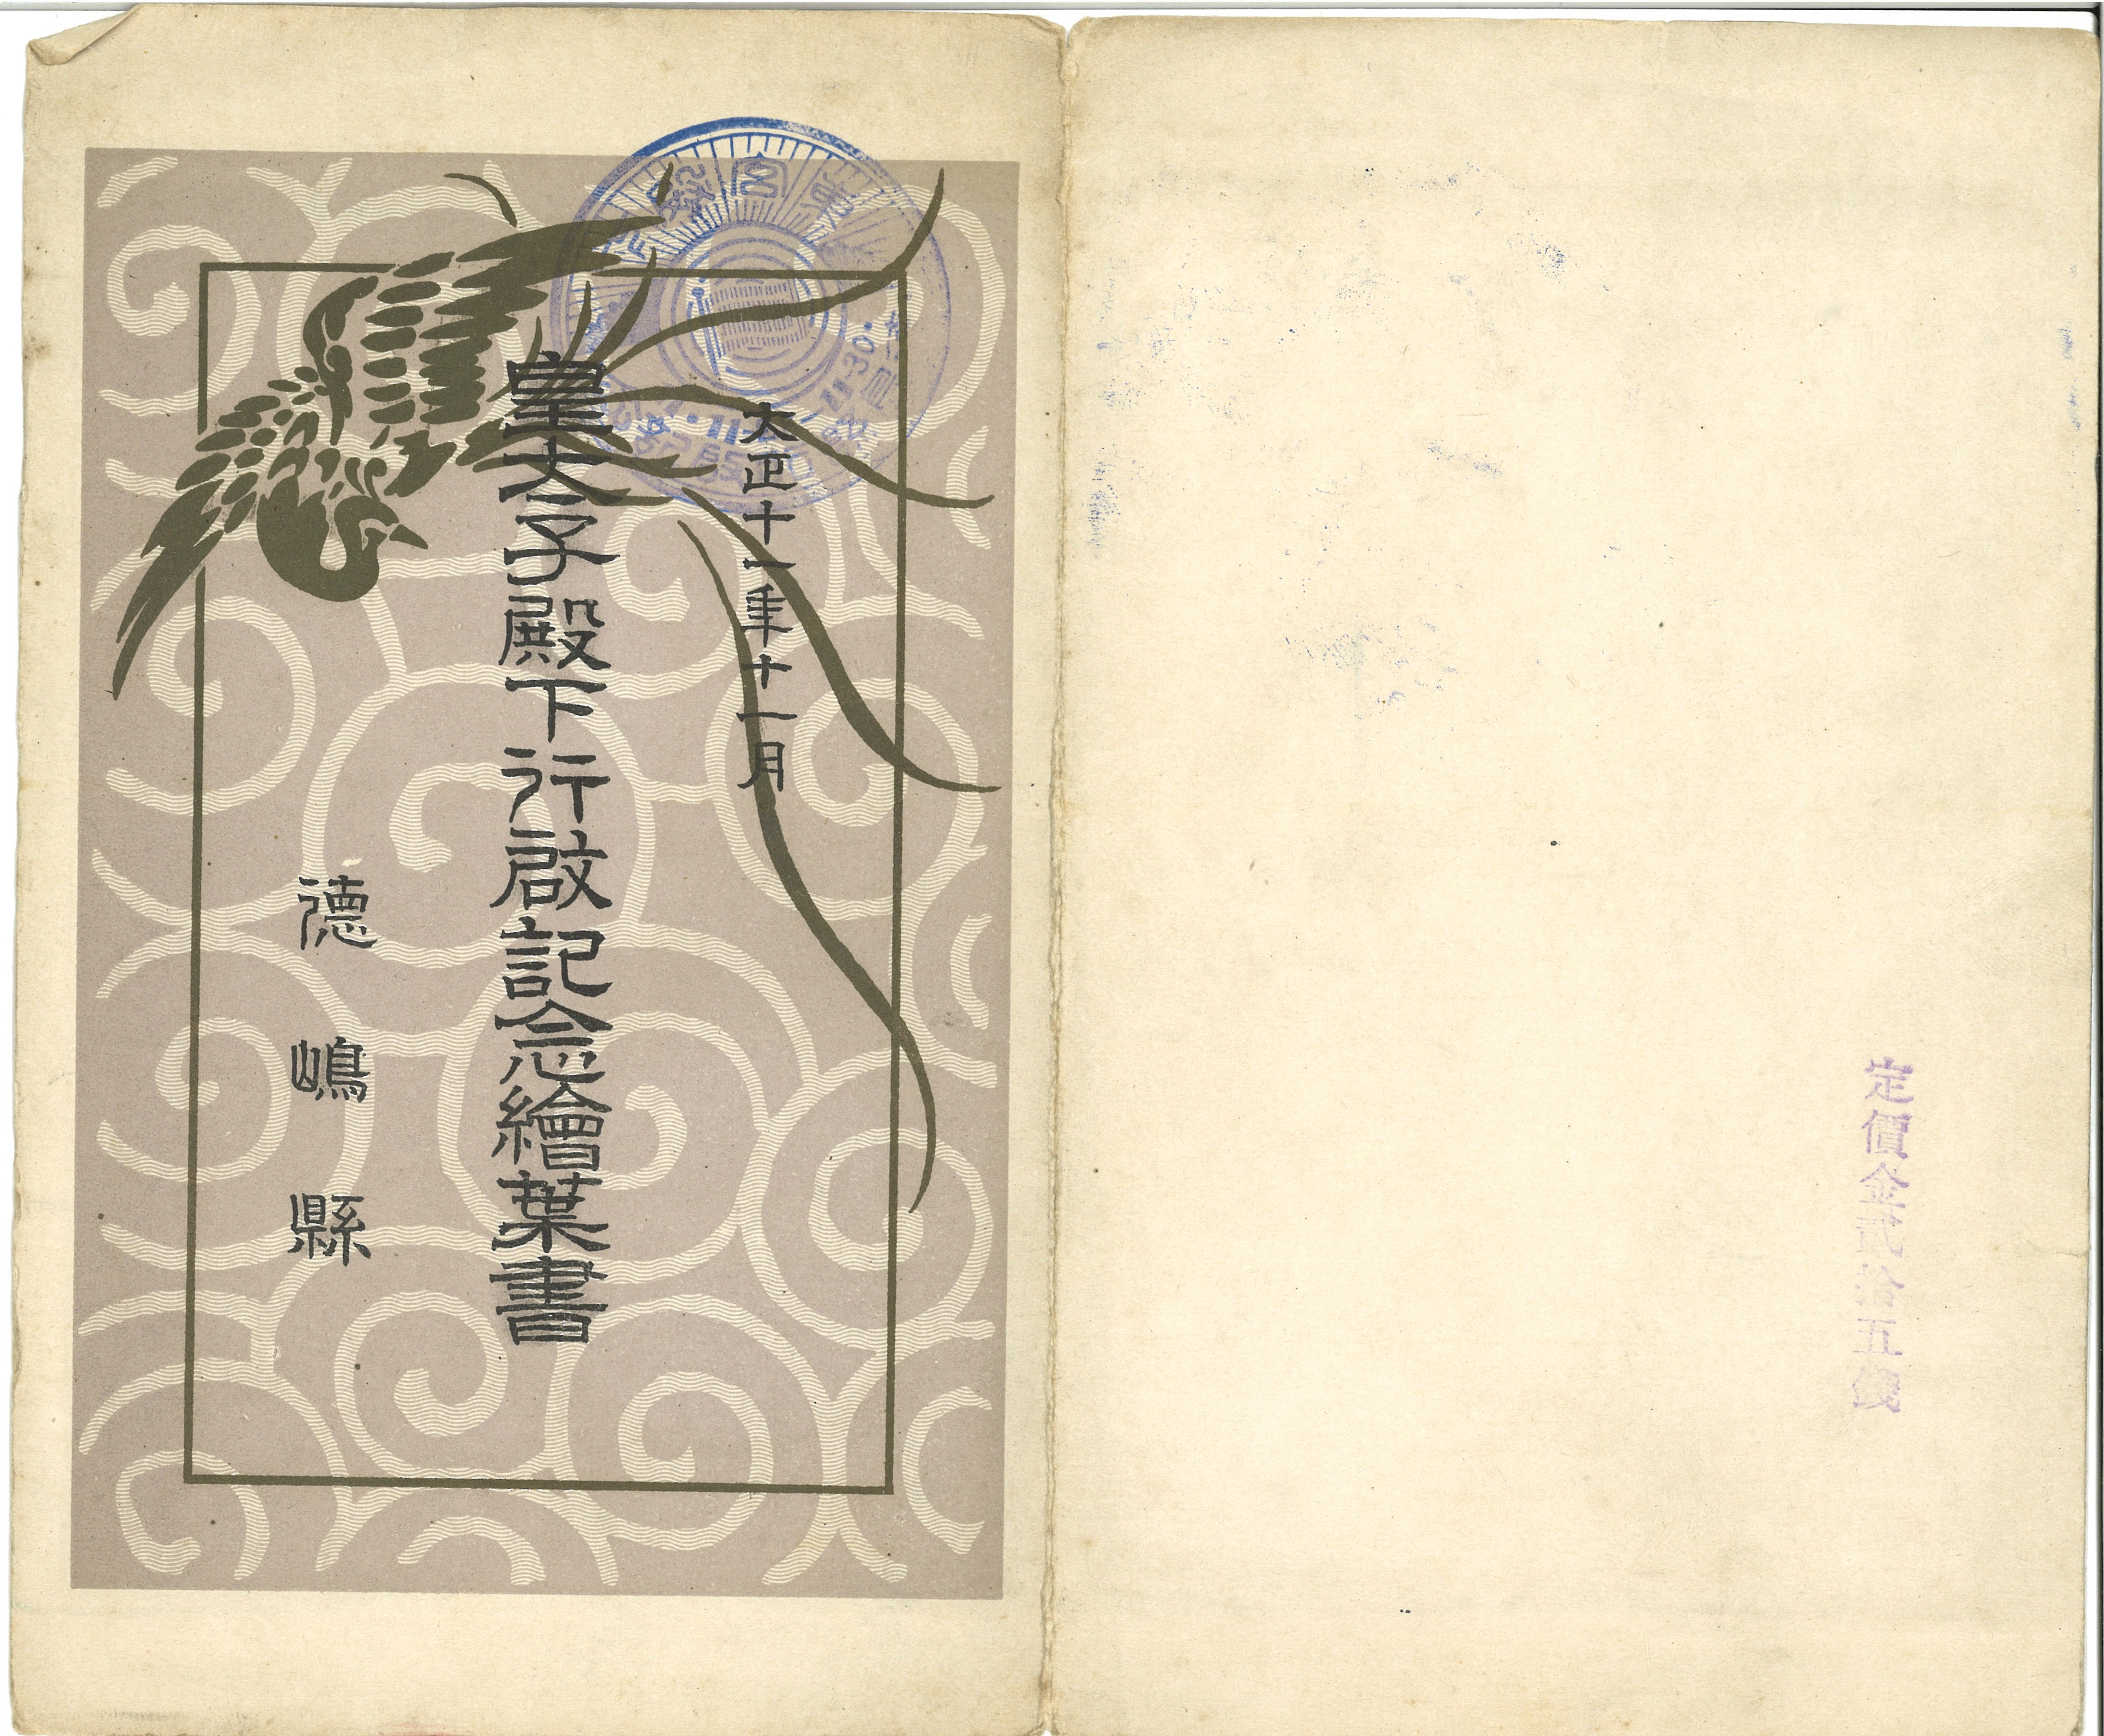 大正十一年十一月
皇太子殿下行啟記念繪葉書
德嶋縣
定價金貳拾五錢